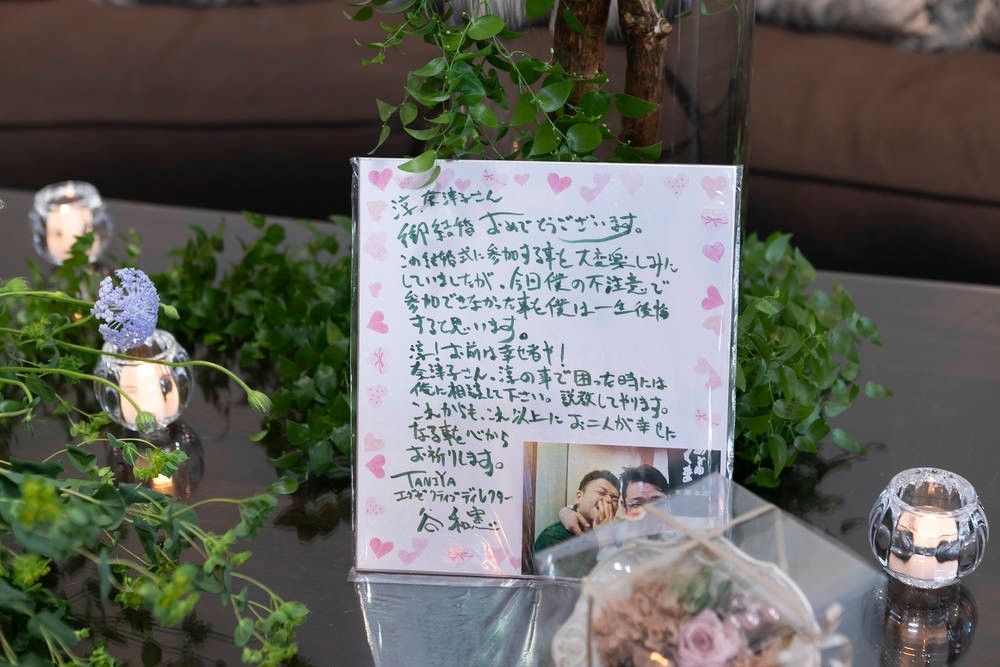 淳！奈津子さん
御結婚おめでとうございます。
この結婚式に参加する事を大変楽しみに
していましたが、今回僕の不注意で
参加できなかった事を僕は一生後悔
すると思います。
淳！お前は幸せ者や！
奈津子さん。淳の事で困った時には
俺に相談して下さい。説教してやります。
これからも、これ以上にお二人が幸せに
なる事を心から
お祈りします。
TANIYA
エグゼクティブディレクター
谷 和憲